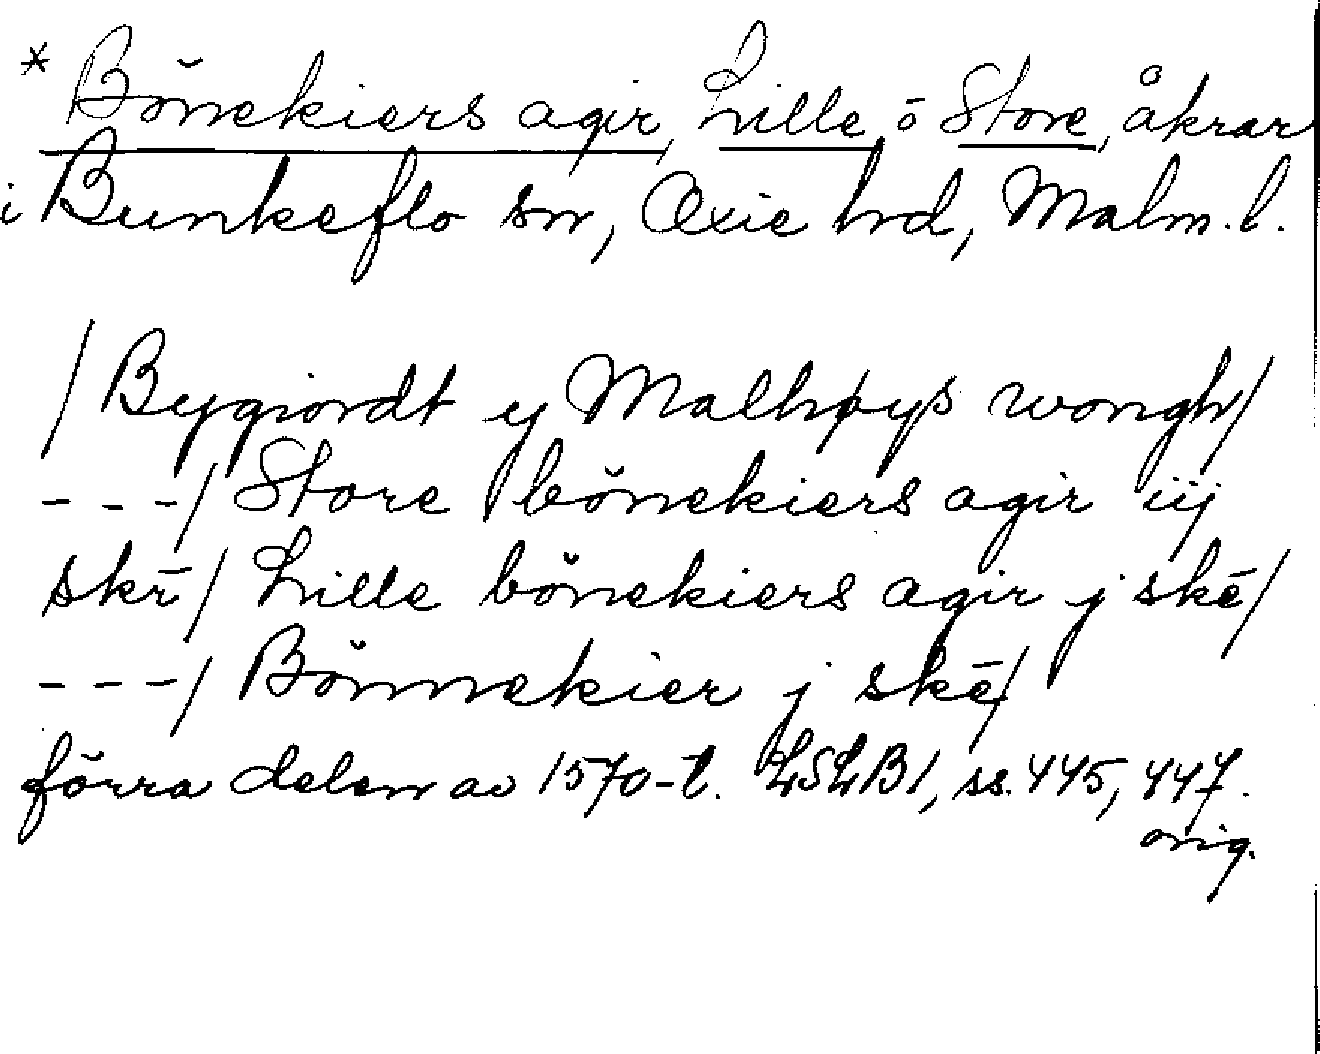 * Bönekiers agir, Lille o Store, åkrar
i Bunkeflo sn, Oxie hrd, Malm. l.
/Bygiordt y Malhøys wongh/
- - -/ Store bönekiers agir iij
skē/ Lille bönekiers agir j skē/
- - -/ Bönnekier j skē/
förra delen av 1570-t. LSLB1, ss. 445, 447.
orig.